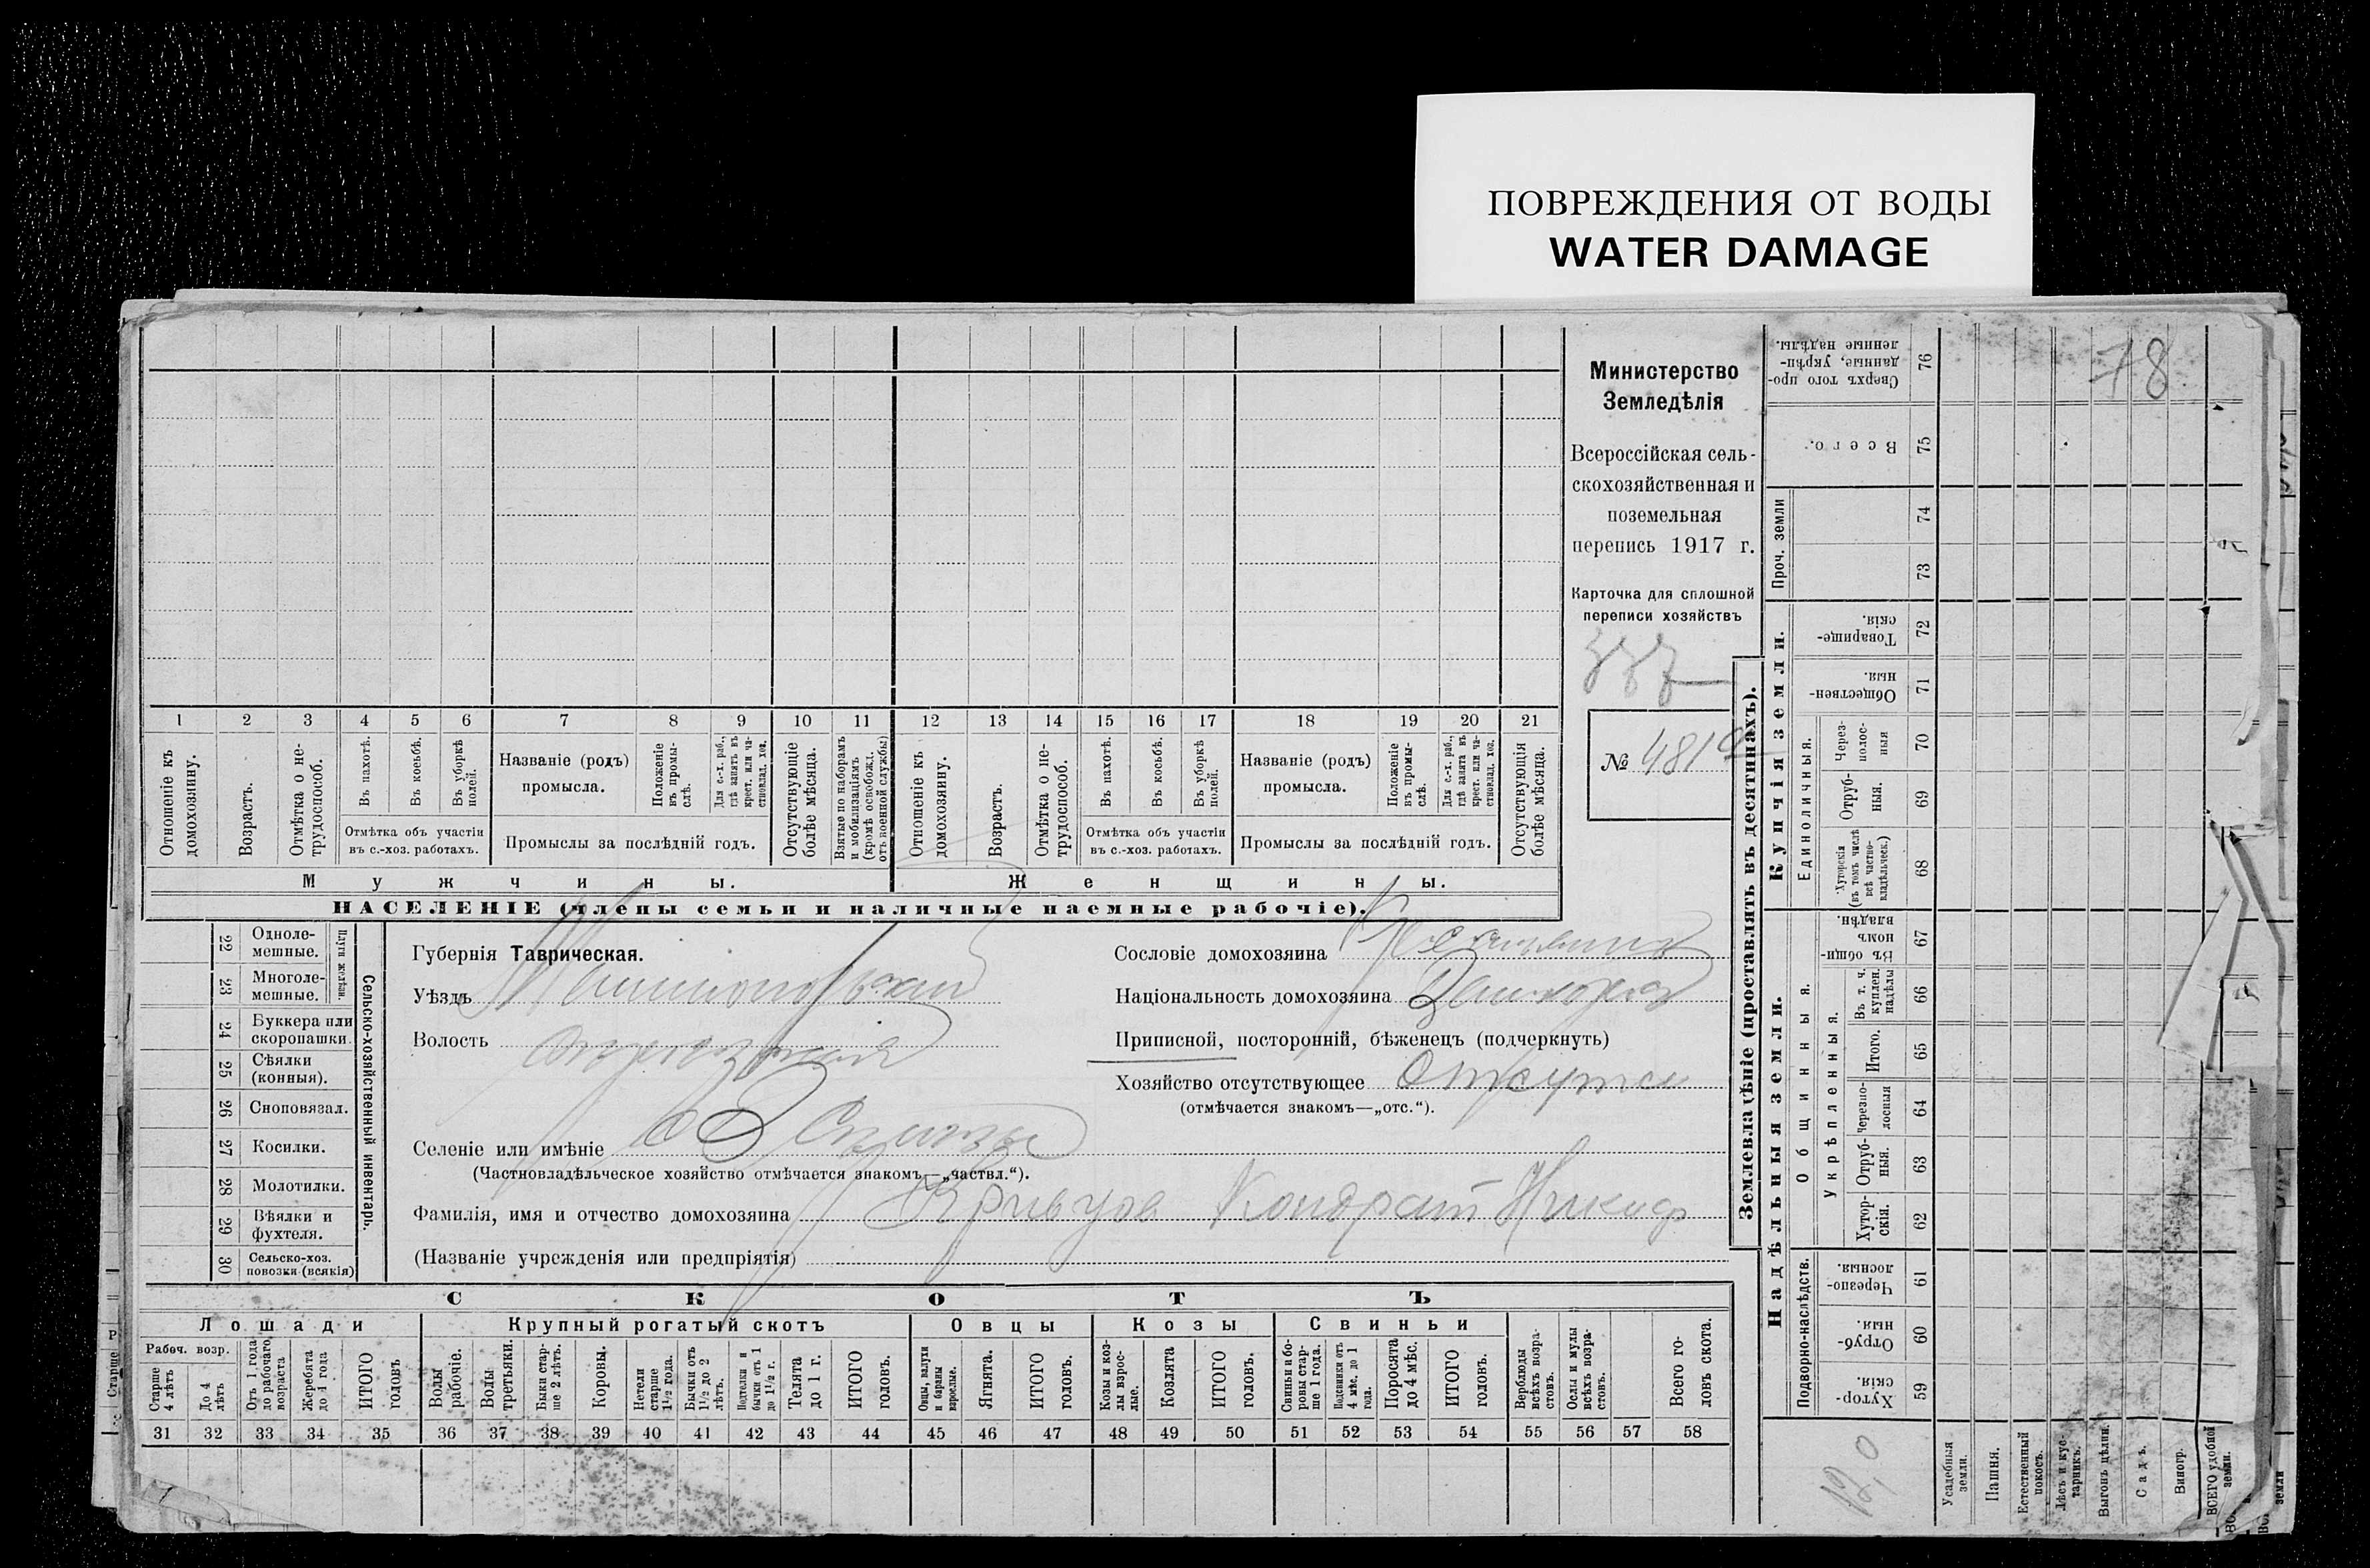 ПОВРЕЖДЕНИЯ ОТ ВОДЫ
WATER DAMAGE
78
Министерство
Земледѣлія
Всероссійская сель-
скохозяйственная и
поземельная
перепись 1917 г.
Карточка для сплошной
переписи хозяйствъ
№ 481
1 2 3 4 5 6 7 8 9 10 11 12 13 14 15 16 17 18 19 20 21
Отношеніе къ домохозяину.
Возрастъ.
Отмѣтка о не-трудоспособ.
Въ пахотѣ.
Въ косьбѣ.
Въ уборкѣ полей.
Отмѣтка объ участіи
въ с.-хоз. работахъ.
Названіе (родъ)
промысла.
Положеніе въ промы-слѣ.
Для с.-х. раб., гдѣ занятъ въ крест. или ча-стновлад. хоз.
Промыслы за послѣдній годъ.
Отсутствующіе болѣе мѣсяца.
Взятые по наборамъ и мобилизаціямъ (кромѣ освобожд. отъ военной службы)
Отношеніе къ домохозяину.
Возрастъ.
Отмѣтка о не-трудоспособ.
Въ пахотѣ.
Въ косьбѣ.
Въ уборкѣ полей.
Отмѣтка объ участіи
въ с.-хоз. работахъ.
Названіе (родъ)
промысла.
Положеніе въ промы-слѣ.
Для с.-х. раб., гдѣ занята въ крест. или ча-стновлад. хоз.
Промыслы за послѣдній годъ.
Отсутствующія болѣе мѣсяца.
Мужчины.
Женщины.
НАСЕЛЕНІЕ (члены семьи и наличные наемные рабочіе).
22 Одноле-мешные.
23 Многоле-мешные.
Плуги желѣзн.
24 Буккера или скоропашки.
25 Сѣялки (конныя).
26 Сноповязал.
27 Косилки.
28 Молотилки.
29 Вѣялки и фухтеля.
30 Сельско-хоз. повозки (всякія)
Сельско-хозяйственный инвентарь.
Губернія Таврическая.
Уѣздъ
Волость
Селеніе или имѣніе
(Частновладѣльческое хозяйство отмѣчается знакомъ—„частвл.“).
Фамилія, имя и отчество домохозяина Кривцов Кондрат Никиф
(Названіе учрежденія или предпріятія)
Сословіе домохозяина
Національность домохозяина
Приписной, посторонній, бѣженецъ (подчеркнуть)
Хозяйство отсутствующее Отсутст
(отмѣчается знакомъ—„отс.“).
СКОТЪ
Лошади
Крупный рогатый скотъ
Овцы
Козы
Свиньи
Рабоч. возр.
Старше 4 лѣтъ
До 4 лѣтъ
Отъ 1 года до рабочаго возраста
Жеребята до 1 года
ИТОГО головъ
Волы рабочіе.
Волы третьяки.
Быки стар-ше 2 лѣтъ.
Коровы.
Нетели старше 1½ года.
Бычки отъ 1½ до 2 лѣтъ.
Подтелки и бычки отъ 1 до 1½ г.
Телята до 1 г.
ИТОГО головъ.
Овцы, валухи и бараны взрослые.
Ягнята.
ИТОГО головъ.
Козы и коз-лы взрос-лые.
Козлята
ИТОГО головъ.
Свиньи и бо-ровы стар-ше 1 года.
Подсвинки отъ 4 мѣс. до 1 года.
Поросята до 4 мѣс.
ИТОГО головъ.
Верблюды всѣхъ возра-стовъ.
Ослы и мулы всѣхъ возра-стовъ.
Всего го-ловъ скота.
31 32 33 34 35 36 37 38 39 40 41 42 43 44 45 46 47 48 49 50 51 52 53 54 55 56 57 58
Землевладѣніе (проставлять въ десятинахъ).
Купчія земли.
Надѣльныя земли.
Сверхъ того про-данные, укрѣп-ленные надѣлы. 76
Всего. 75
Проч. земли
74
73
Товарище-скія. 72
Обществен-ныя. 71
Единоличныя.
Через-полос-ныя 70
Отруб-ныя. 69
Хуторскія (въ томъ числѣ всѣ частно-владѣльческ.) 68
Общинныя.
Въ общин-номъ владѣн. 67
Укрѣпленныя.
Въ т. ч. куплен. надѣлы 66
Итого. 65
Черезпо-лосныя 64
Отруб-ныя. 63
Хутор-скія. 62
Подворно-наслѣдств.
Черезпо-лосныя. 61
Отруб-ныя. 60
Хутор-скія. 59
12,0
Усадебныя земли.
Пашня.
Естественный покосъ.
Лѣсъ и кус-тарникъ.
Выгонъ цѣлин.
Садъ.
Виногр.
ВСЕГО удобной земли.